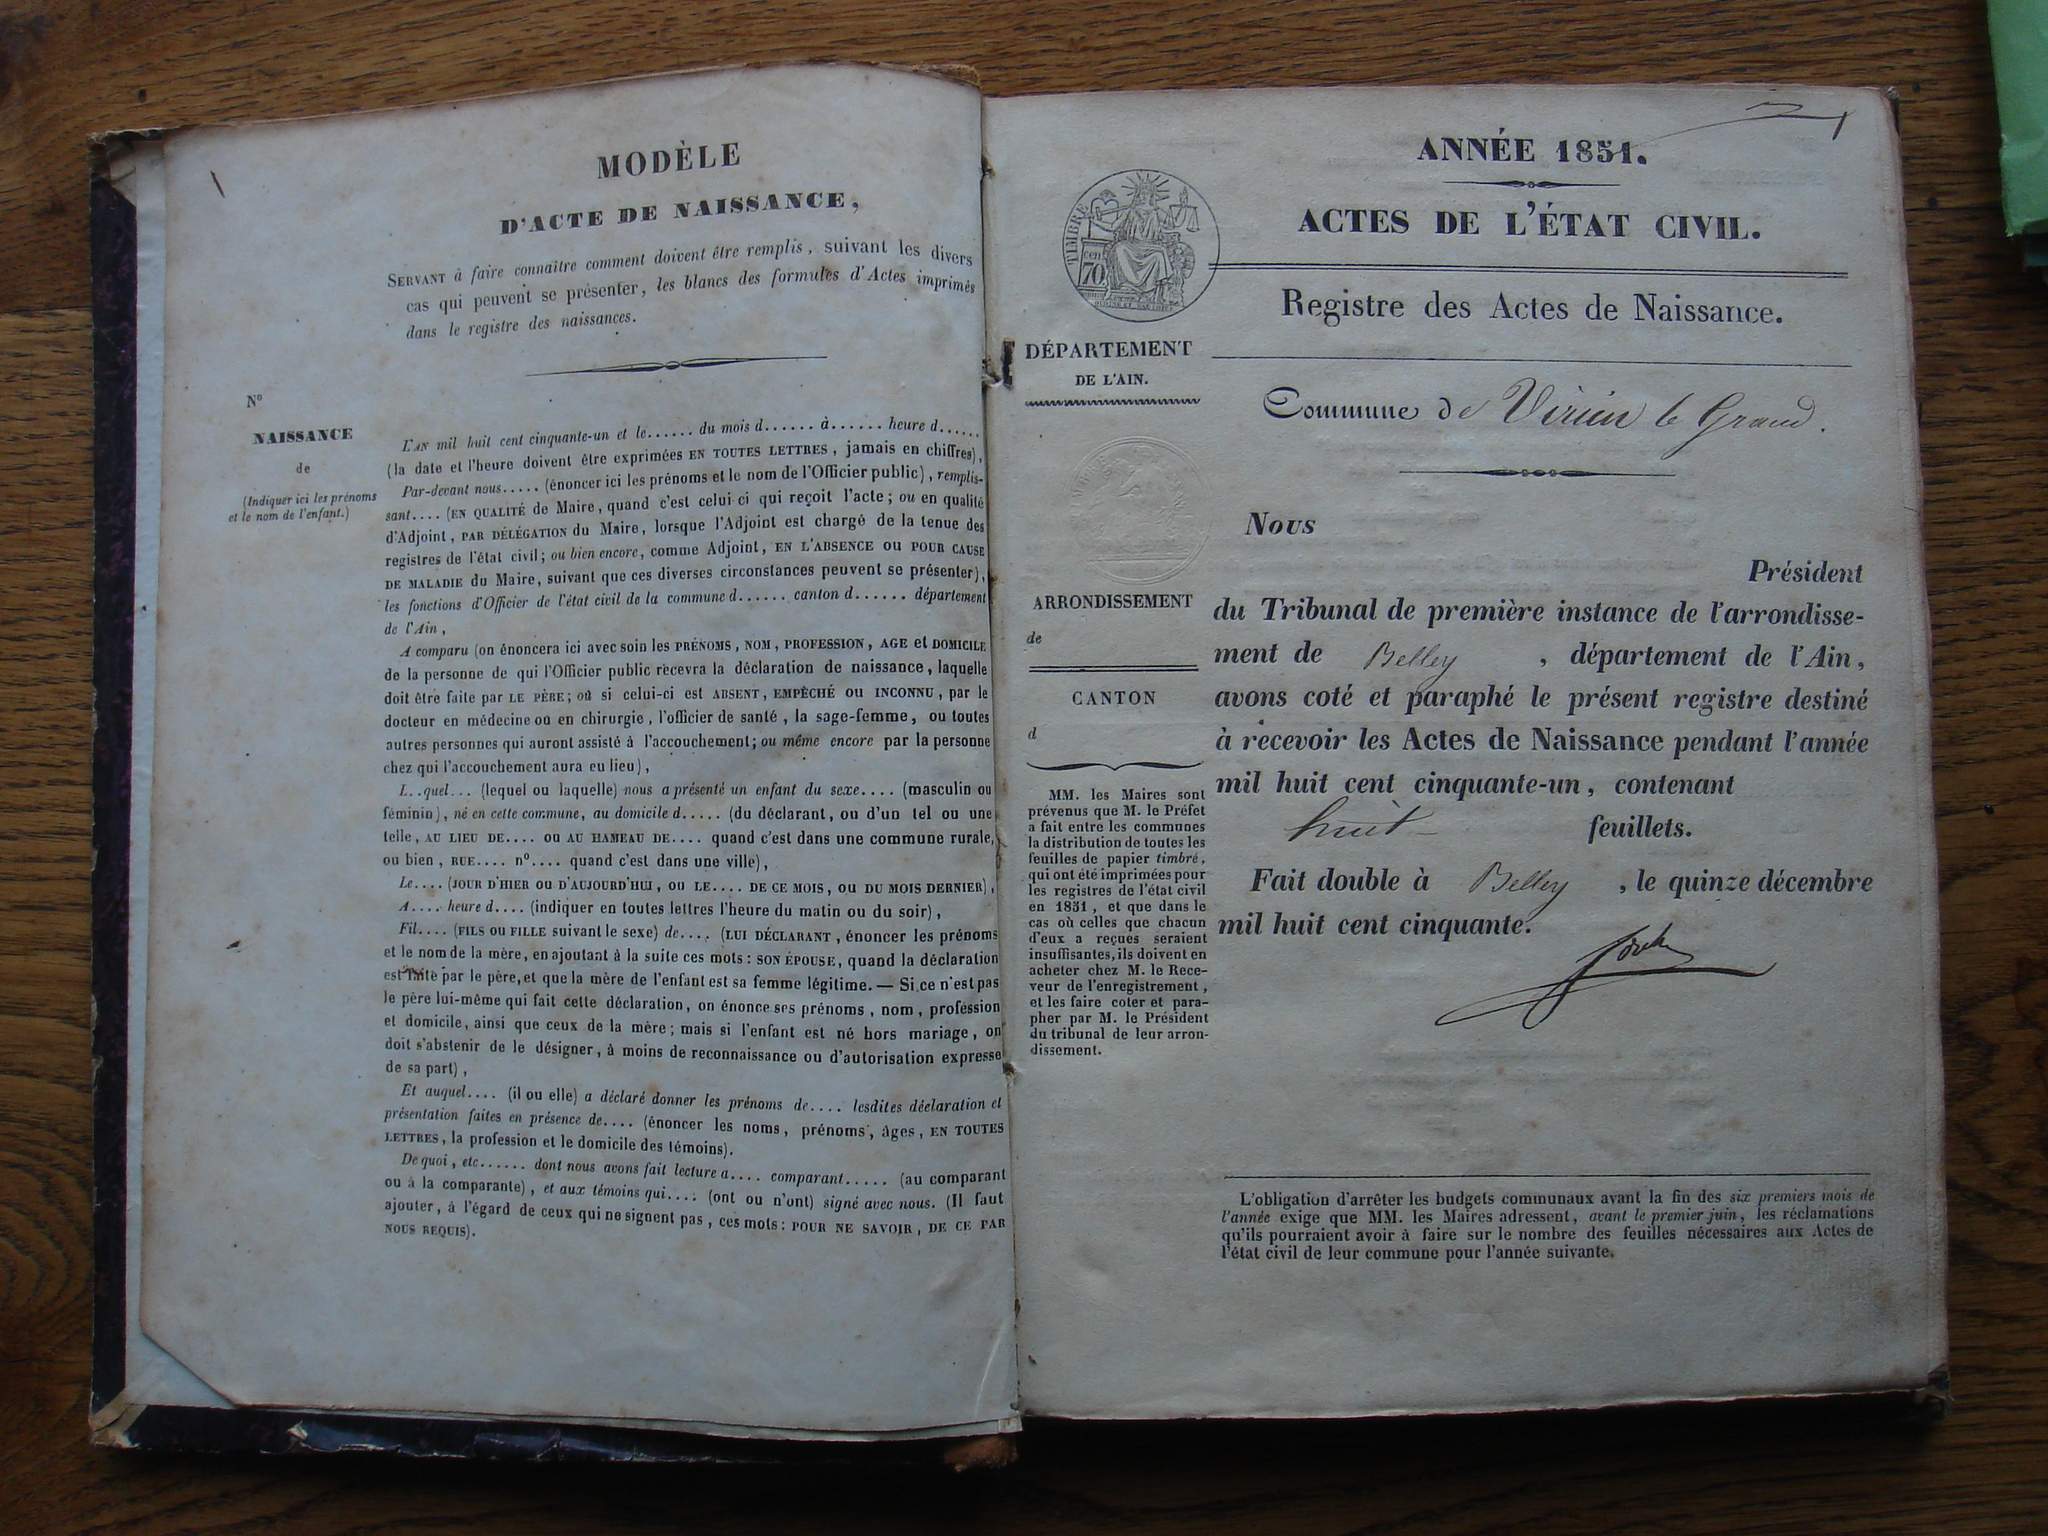 MODÈLE
D'ACTE DE NAISSANCE,
SERVANT à faire connaître comment doivent être remplis, suivant les divers
cas qui peuvent se présenter, les blancs des formules d'Actes imprimés
dans le registre des naissances.
N°
NAISSANCE
de
(Indiquer ici les prénoms
et le nom de l'enfant.)
L'AN mil huit cent cinquante-un et le...... du mois d...... à...... heure d......
(la date et l'heure doivent être exprimées EN TOUTES LETTRES, jamais en chiffres),
Par-devant nous..... (énoncer ici les prénoms et le nom de l'Officier public), remplis-
sant.... (EN QUALITÉ de Maire, quand c'est celui-ci qui reçoit l'acte; ou en qualité
d'Adjoint, PAR DÉLÉGATION du Maire, lorsque l'Adjoint est chargé de la tenue des
registres de l'état civil; ou bien encore, comme Adjoint, EN L'ABSENCE OU POUR CAUSE
DE MALADIE du Maire, suivant que ces diverses circonstances peuvent se présenter),
les fonctions d'Officier de l'état civil de la commune d...... canton d...... département
de l'Ain,
A comparu (on énoncera ici avec soin les PRÉNOMS, NOM, PROFESSION, AGE et DOMICILE
de la personne de qui l'Officier public recevra la déclaration de naissance, laquelle
doit être faite par LE PÈRE; où si celui-ci est ABSENT, EMPÊCHÉ OU INCONNU, par le
docteur en médecine ou en chirurgie, l'officier de santé, la sage-femme, ou toutes
autres personnes qui auront assisté à l'accouchement; ou même encore par la personne
chez qui l'accouchement aura eu lieu),
L..quel... (lequel ou laquelle) nous a présenté un enfant du sexe.... (masculin ou
féminin), né en cette commune, au domicile d..... (du déclarant, ou d'un tel ou une
telle, AU LIEU DE.... OU AU HAMEAU DE.... quand c'est dans une commune rurale,
ou bien, RUE.... n°.... quand c'est dans une ville),
Le.... (JOUR D'HIER OU D'AUJOURD'HUI, OU LE.... DE CE MOIS, OU DU MOIS DERNIER),
A.... heure d.... (indiquer en toutes lettres l'heure du matin ou du soir),
Fil.... (FILS OU FILLE suivant le sexe) de.... (LUI DÉCLARANT, énoncer les prénoms
et le nom de la mère, en ajoutant à la suite ces mots: SON ÉPOUSE, quand la déclaration
est faite par le père, et que la mère de l'enfant est sa femme légitime. — Si ce n'est pas
le père lui-même qui fait cette déclaration, on énonce ses prénoms, nom, profession
et domicile, ainsi que ceux de la mère; mais si l'enfant est né hors mariage, on
doit s'abstenir de le désigner, à moins de reconnaissance ou d'autorisation expresse
de sa part),
Et auquel.... (il ou elle) a déclaré donner les prénoms de.... lesdites déclaration et
présentation faites en présence de.... (énoncer les noms, prénoms, âges, EN TOUTES
LETTRES, la profession et le domicile des témoins).
De quoi, etc...... dont nous avons fait lecture a.... comparant..... (au comparant
ou à la comparante), et aux témoins qui.... (ont ou n'ont) signé avec nous. (Il faut
ajouter, à l'égard de ceux qui ne signent pas, ces mots: POUR NE SAVOIR, DE CE PAR
NOUS REQUIS).
ANNÉE 1851.
ACTES DE L'ÉTAT CIVIL.
Registre des Actes de Naissance.
TIMBRE
CEN
70
DÉPARTEMENT
DE L'AIN.
ARRONDISSEMENT
de
CANTON
d
MM. les Maires sont
prévenus que M. le Préfet
a fait entre les communes
la distribution de toutes les
feuilles de papier timbré,
qui ont été imprimées pour
les registres de l'état civil
en 1851, et que dans le
cas où celles que chacun
d'eux a reçues seraient
insuffisantes, ils doivent en
acheter chez M. le Rece-
veur de l'enregistrement,
et les faire coter et para-
pher par M. le Président
du tribunal de leur arron-
dissement.
Commune de Virieu le Grand.
Nous
Président
du Tribunal de première instance de l'arrondisse-
ment de Belley, département de l'Ain,
avons coté et paraphé le présent registre destiné
à recevoir les Actes de Naissance pendant l'année
mil huit cent cinquante-un, contenant
huit feuillets.
Fait double à Belley, le quinze décembre
mil huit cent cinquante.
L'obligation d'arrêter les budgets communaux avant la fin des six premiers mois de
l'année exige que MM. les Maires adressent, avant le premier juin, les réclamations
qu'ils pourraient avoir à faire sur le nombre des feuilles nécessaires aux Actes de
l'état civil de leur commune pour l'année suivante.